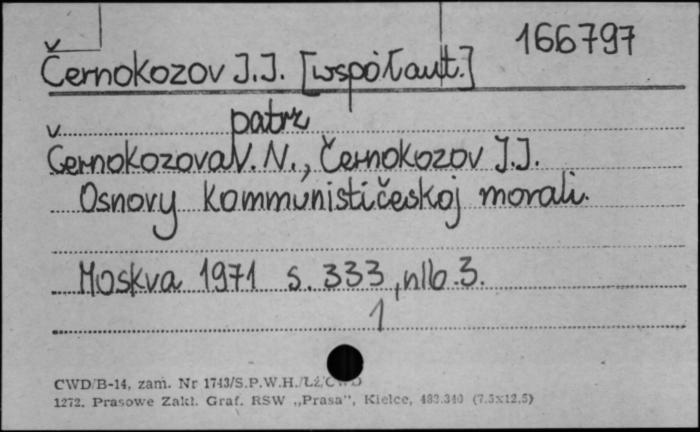 166797
Černokozov J.J. [współaut.]
patrz
Černokozova V. N., Černokozov J.J.
Osnovy kommunističeskoj morali.
Moskva 1971 s. 333, nlb. 3.
1
CWD/B-14, zam. Nr 1743/S.P.W.H./ŁZ/CWD
1272. Prasowe Zakł. Graf. RSW „Prasa”, Kielce, 483.340 (7.5x12.5)